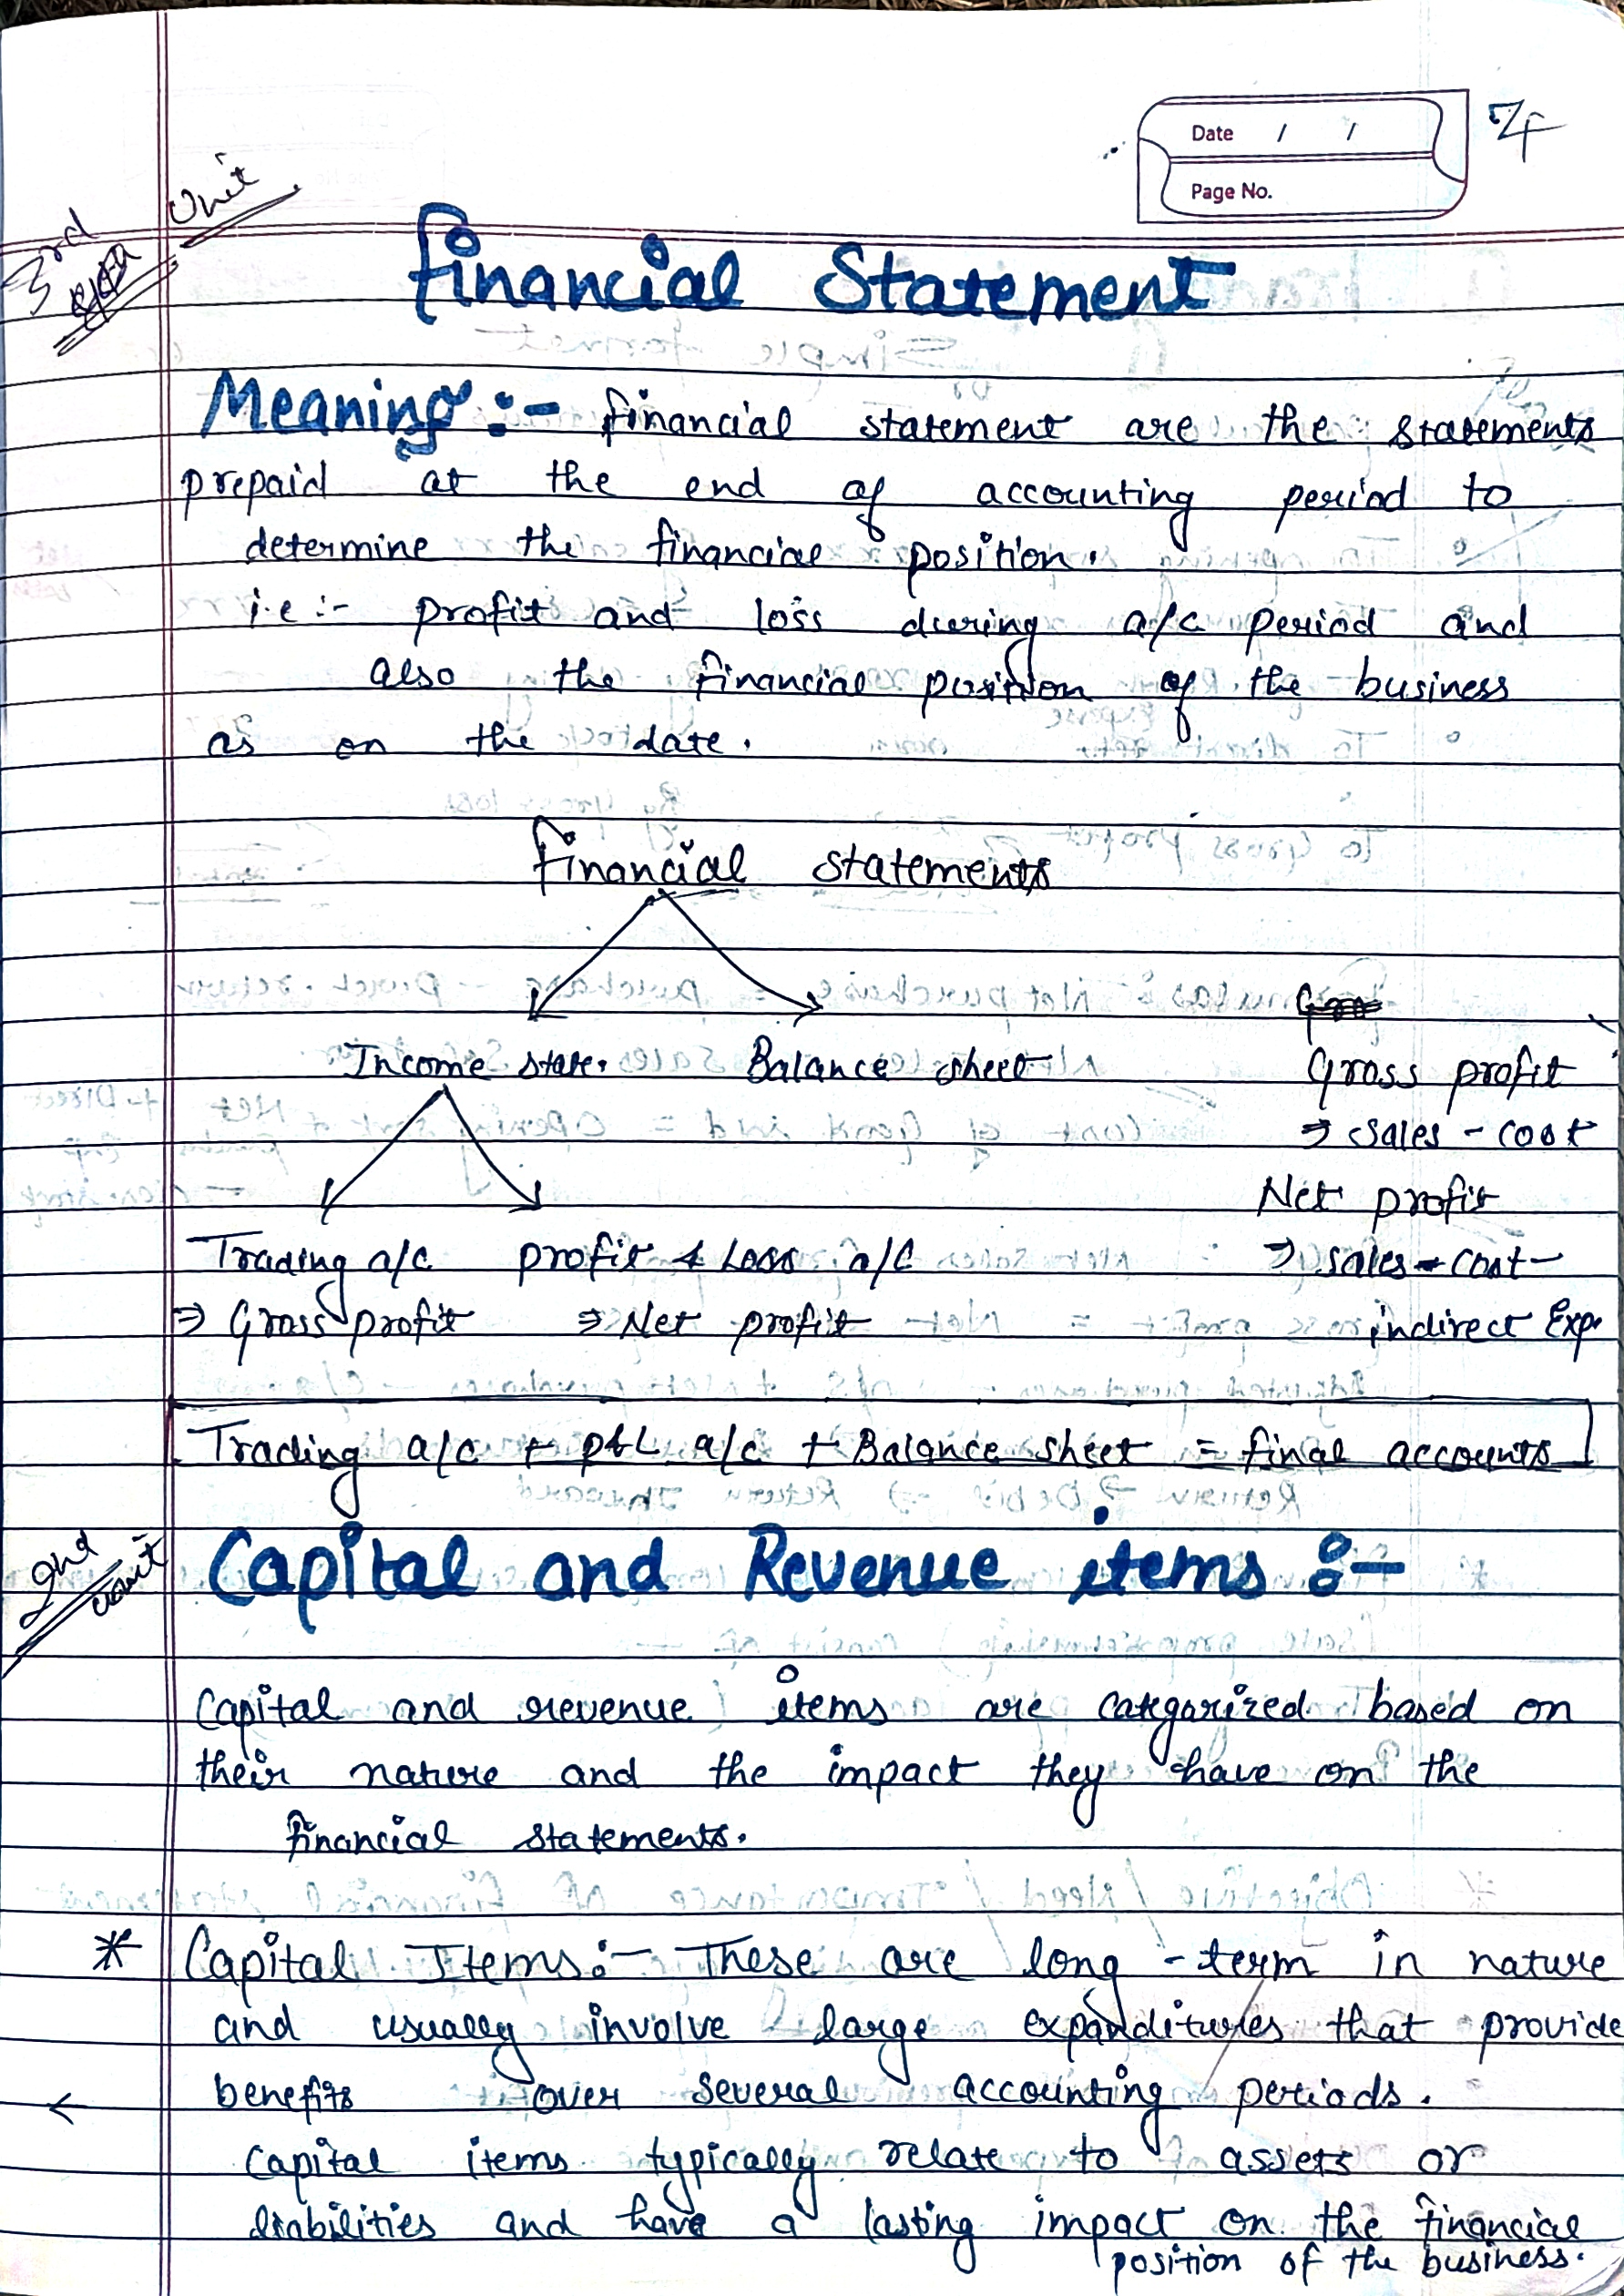 Date / /
Page No.
3rd Unit
Financial Statement
Meaning :- Financial statement are the statements
prepaid at the end of accounting period to
determine the financial position.
i.e :- profit and loss during a/c period and
also the financial position of the business
as on the date.
Financial statements
Income state. Balance sheet
Gross profit
⇒ Sales - cost
Net profit
Trading a/c profit & Loss a/c ⇒ sales - cost -
⇒ Gross profit ⇒ Net profit indirect Exp.
Trading a/c + P&L a/c + Balance sheet = final accounts
2nd unit
Capital and Revenue items :-
Capital and revenue items are categarized based on
their nature and the impact they have on the
financial statements.
* Capital Items :- These are long-term in nature
and usually involve large expanditures that provide
benefits over several accounting periods.
Capital items typically relate to assets or
liabilities and have a lasting impact on the financial
position of the business.